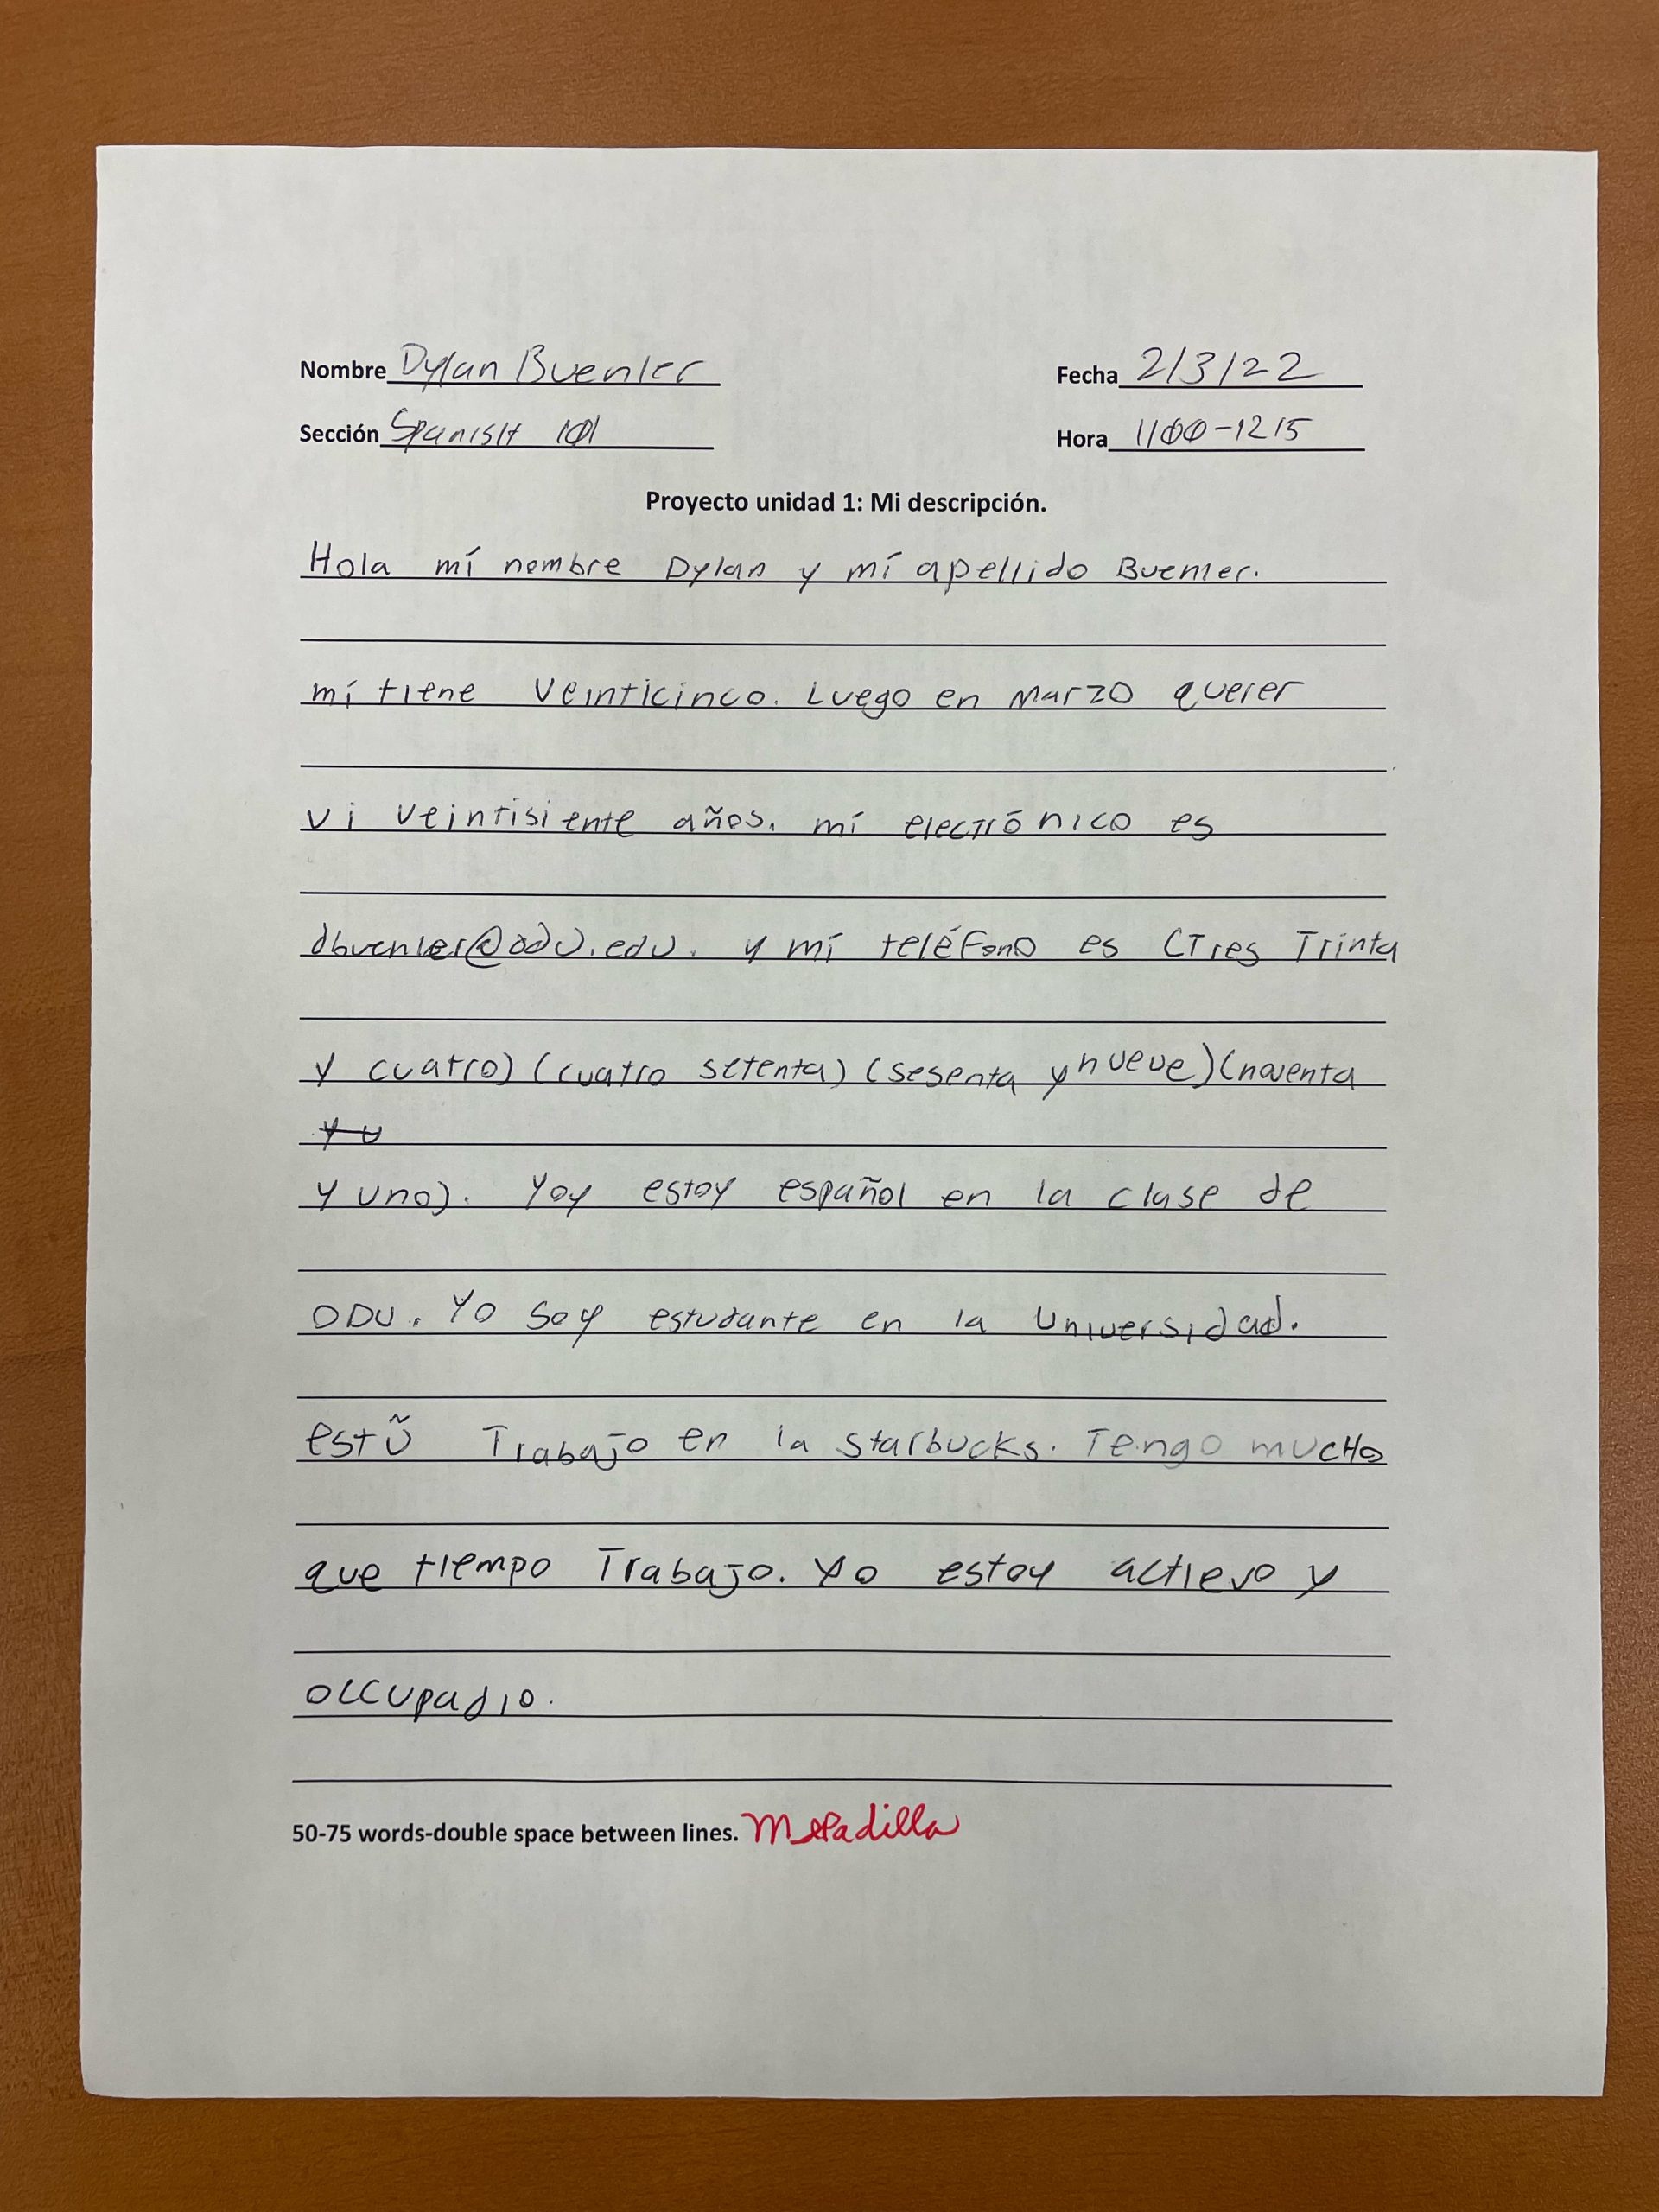 Nombre Dylan Buenler Fecha 2/3/22
Sección Spanish 101 Hora 1100-1215
Proyecto unidad 1: Mi descripción.
Hola mí nombre Dylan y mí apellido Buenler.
mí tiene veinticinco. Luego en Marzo querer
vi veintisiente años. mí electrónico es
dbuenler@odu.edu. y mí teléfono es (Tres Trinta
y cuatro) (cuatro setenta) (sesenta y nueve) (noventa
y u
y uno). Yoy estoy español en la clase de
ODU. Yo soy estudante en la Universidad.
estũ Trabajo en la starbucks. Tengo mucho
que tiempo Trabajo. Yo estoy actievo y
occupadio.
50-75 words-double space between lines. MPadilla